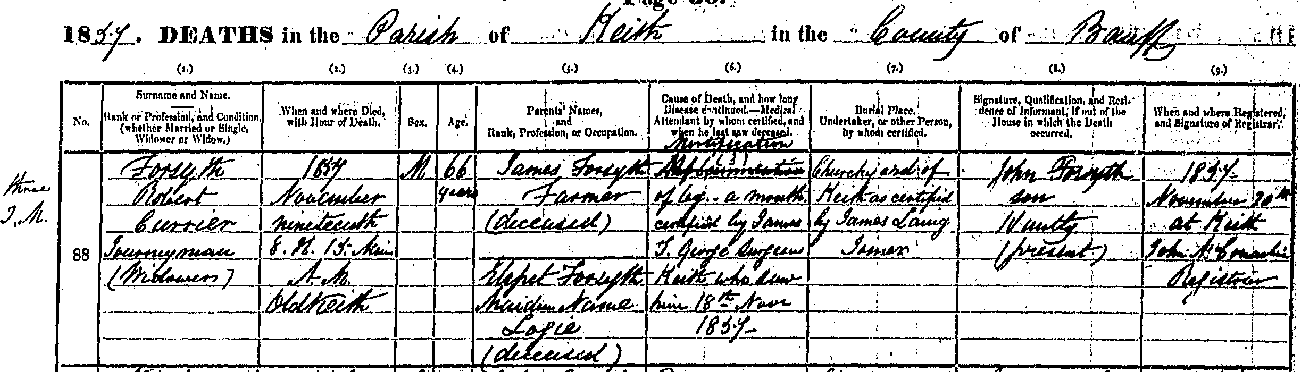 Page
1857. DEATHS in the Parish of Keith in the County of Banff
(1.) (2.) (3.) (4.) (5.) (6.) (7.) (8.) (9.)
No.
Surname and Name.
Rank or Profession, and Condition,
(whether Married or Single,
Widower or Widow.)
When and where Died,
with Hour of Death.
Sex.
Age.
Parents' Names,
and
Rank, Profession, or Occupation.
Cause of Death, and how long
Disease continued.—Medical
Attendant by whom certified, and
when he last saw deceased.
Burial Place.
Undertaker, or other Person,
by whom certified.
Signature, Qualification, and Resi-
dence of Informant, if out of the
House in which the Death
occurred.
When and where Registered,
and Signature of Registrar.
three
J. M.
88
Forsyth
Robert
Currier
Journeyman
(Widower)
1857
November
nineteenth
A. M.
Old Keith
M
66
years
James Forsyth
Farmer
(deceased)
Elspet Forsyth
Maiden Name
Logie
(deceased)
Mortification
of leg.. a month
certified by James
T. George Surgeon
Keith who saw
him 18th Novr
1857
Churchyard of
Keith as certified
by James Laing
John Forsyth
son
(present)
1857
November 20th
at Keith
Registrar